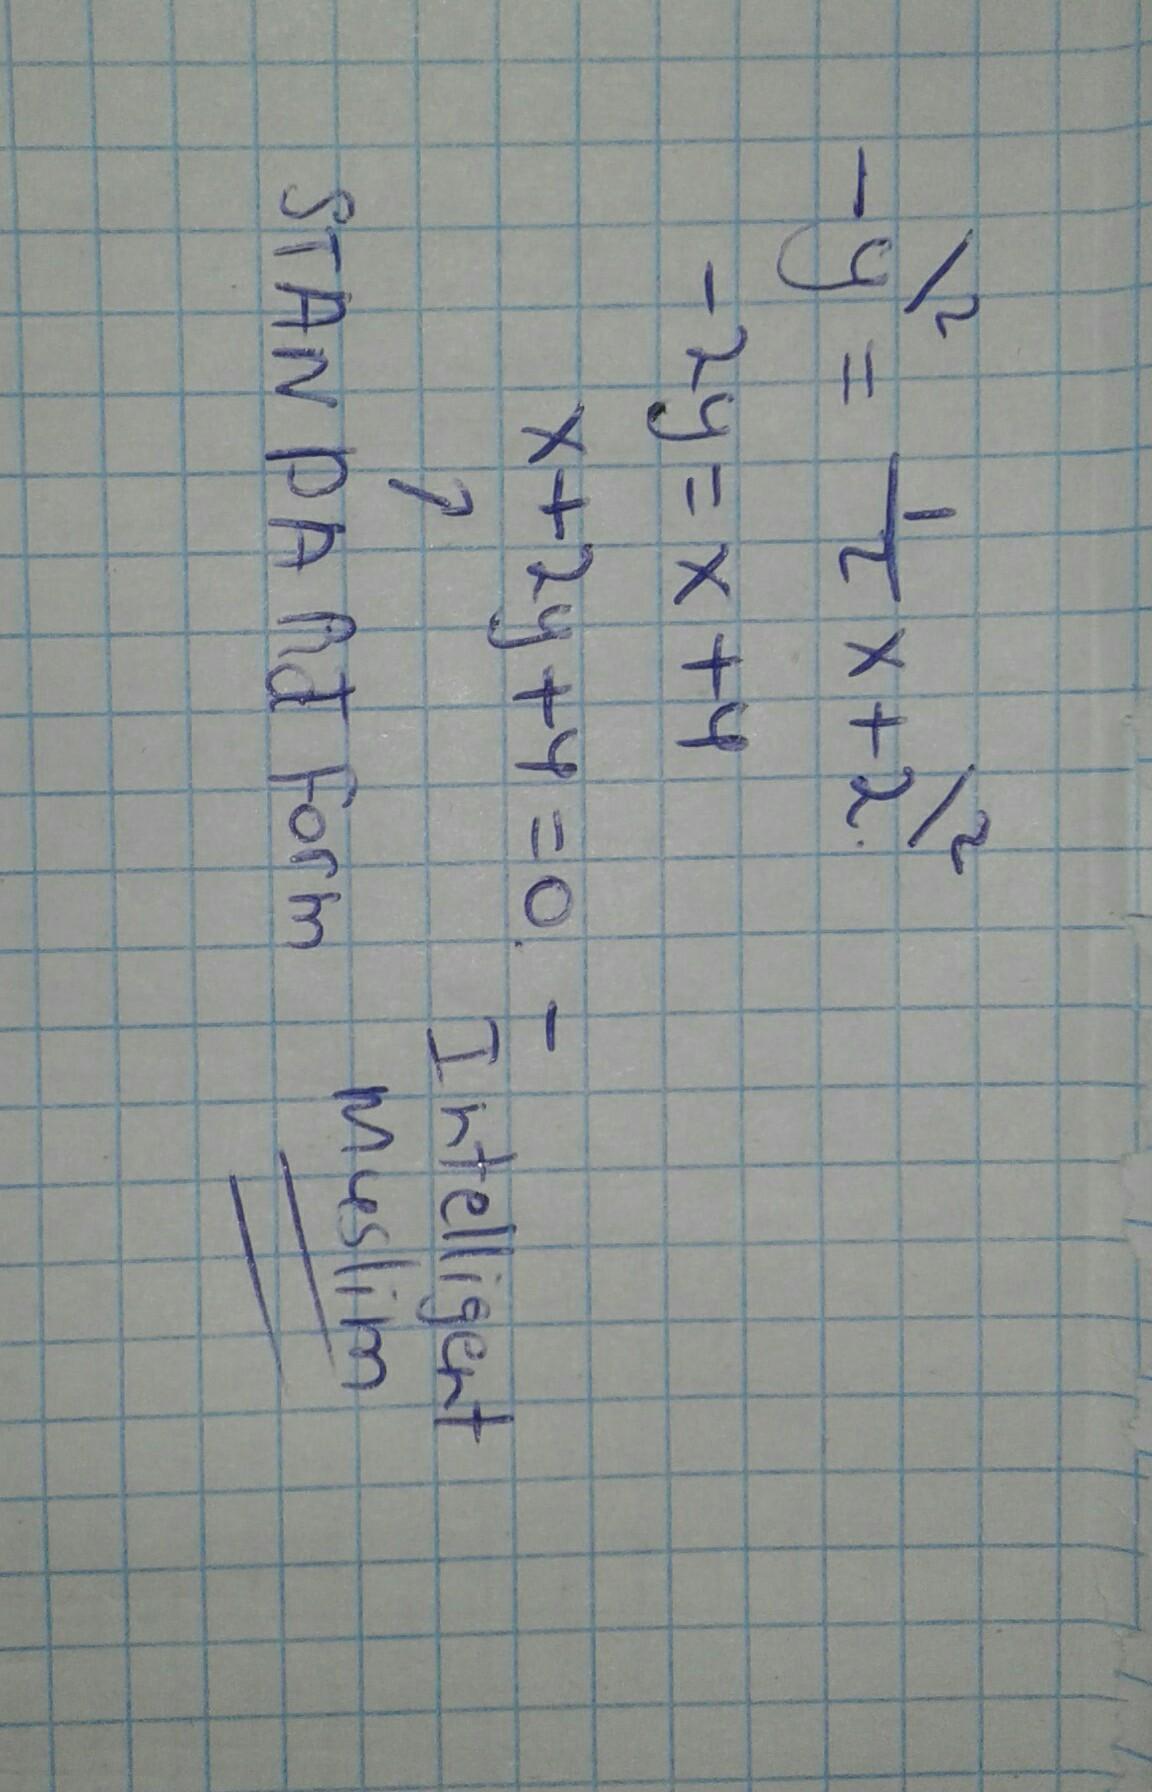 -y/2 = 1/2 x + 2/2
-2y = x + 4
x + 2y + 4 = 0. -
STANDARd Form
Intelligent
Muslim